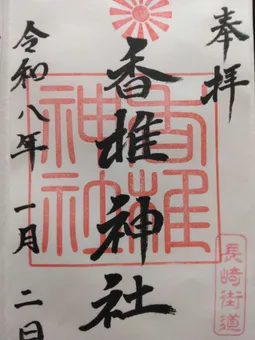 奉拝
香椎神社
令和八年 一月 二日
香椎神社
長崎街道